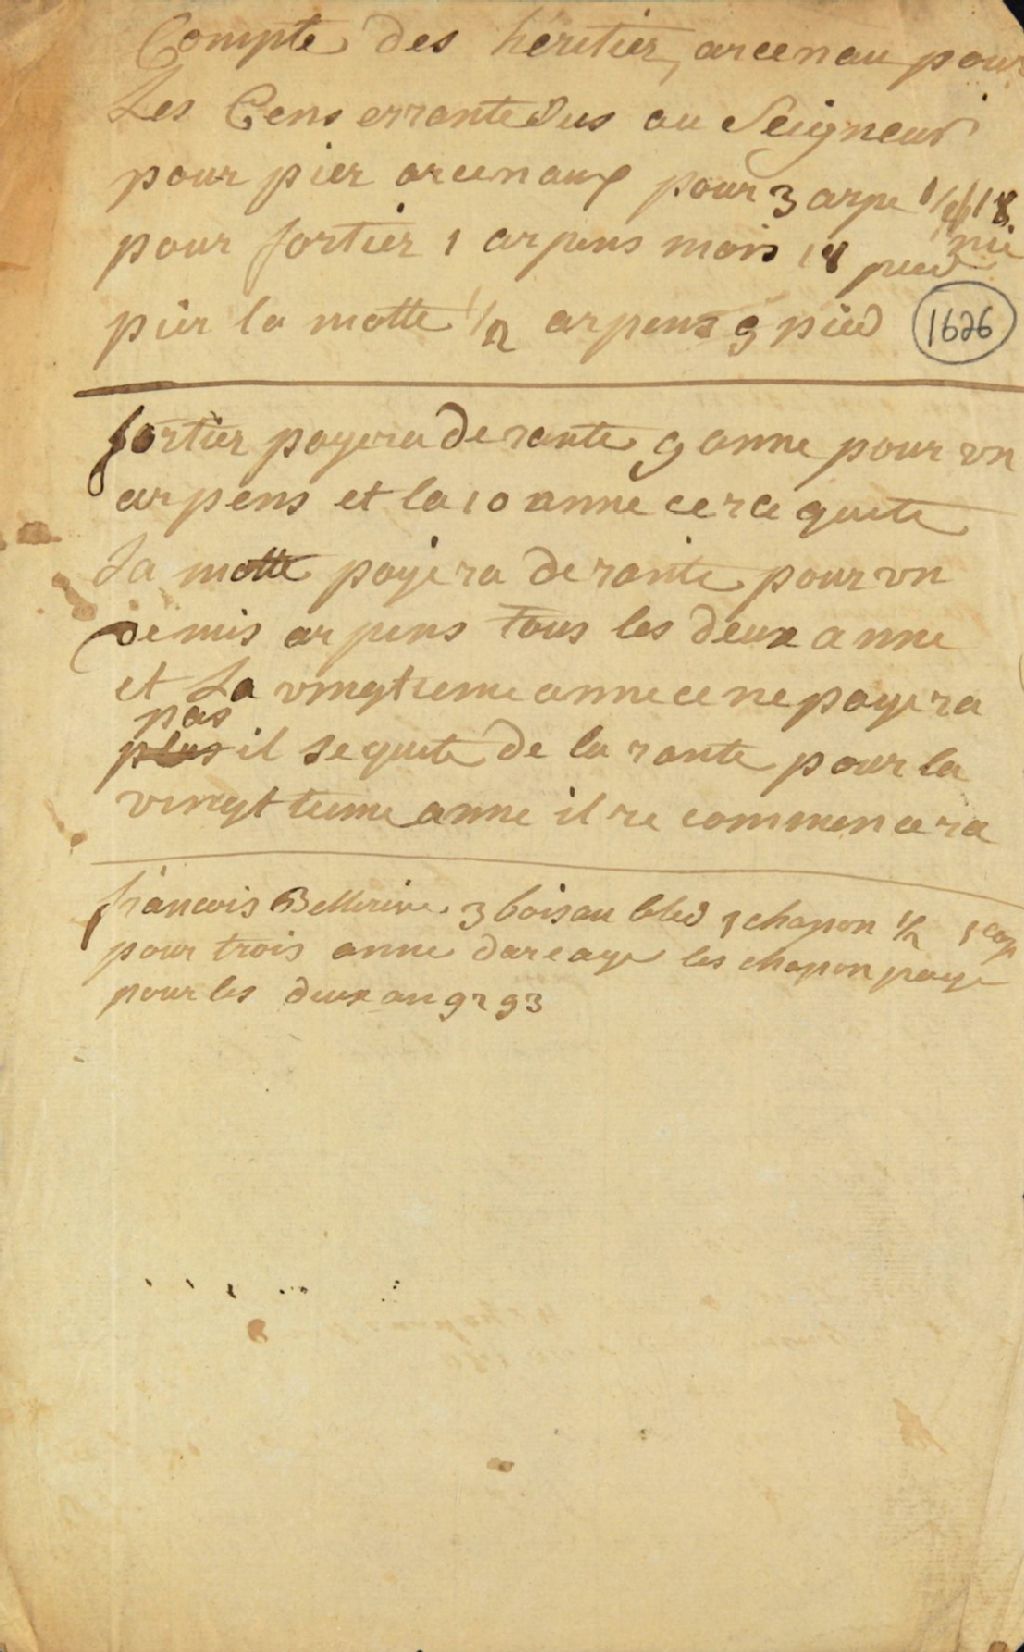 Compte des heritier, arcenau pour
Les Cens errante dus au Seigneur
pour pier arcenaux pour 3 arpe 1/2 18
pied
pour fortier 1 arpens mois 18 pied
pier la motte 1/2 arpens 9 pied 1626
fortier payera de rante 9 anne pour vn
arpens et la 10 anne cera quite
La motte payera de rante pour vn
demis arpens tous les deux anne
et La vingtieme anne ce ne payera
pas
plus il se quite de la rante pour la
vingttieme anne il re commencera
francois Bellerive 3 boisau bled 1 chapon 1/2 1 cop
pour trois anne dareage les chapon paye
pour les deux an 92 93